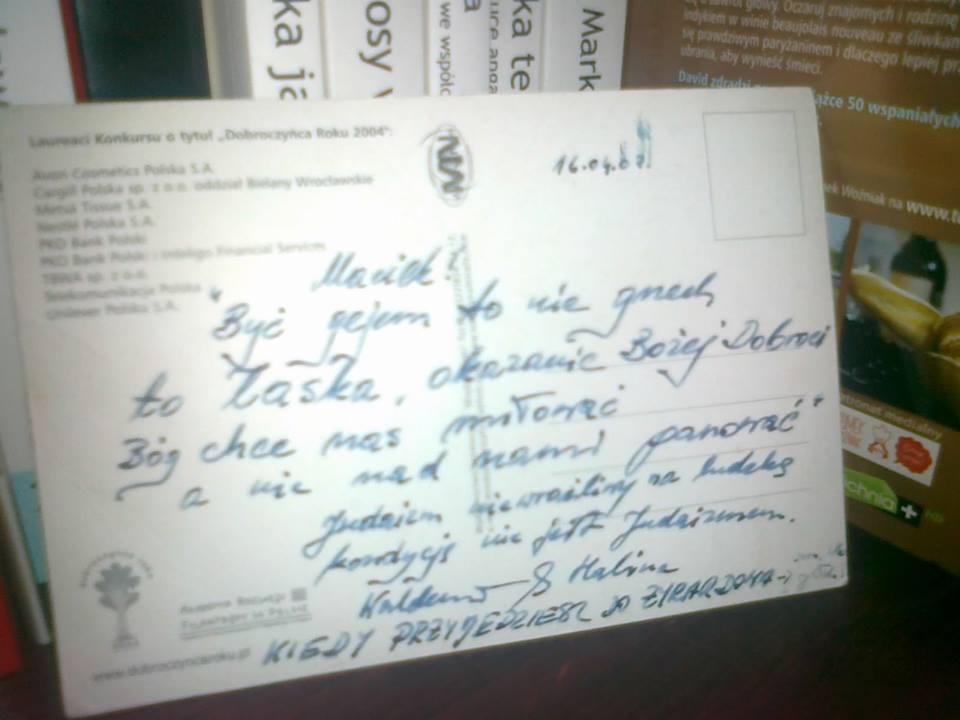 ka ja
osy w
we współc
ka te
Mark
Oczaruj znajomych i rodzinę
indykiem w winie beaujolais nouveau ze śliwkam
się prawdziwym paryżaninem i dlaczego lepiej prz
ubrania, aby wynieść śmieci.
David zdradzi
ążce 50 wspaniałych
ek Woźniak na www.t
Laureaci Konkursu o tytuł „Dobroczyńca Roku 2004”:
Avon Cosmetics Polska S.A.
Cargill Polska sp. z o.o. oddział Bielany Wrocławskie
Metsä Tissue S.A.
Nestlé Polska S.A.
PKO Bank Polski
PKO Bank Polski i Inteligo Financial Services
TBWA sp. z o.o.
Telekomunikacja Polska
Unilever Polska S.A.
16.04.07.
Maciek!
"Być gejem to nie grzech,
to Łaska, okazanie Bożej Dobroci
Bóg chce nas miłować
a nie nad nami panować"
Judaizm niewrażliwy na ludzką
kondycję nie jest Judaizmem.
Halina
KIEDY PRZYJEDZIESZ DO ŻYRARDOWA
Akademia Rozwoju
Filantropii w Polsce
www.dobroczyncaroku.pl
patronat medialny
chnia+